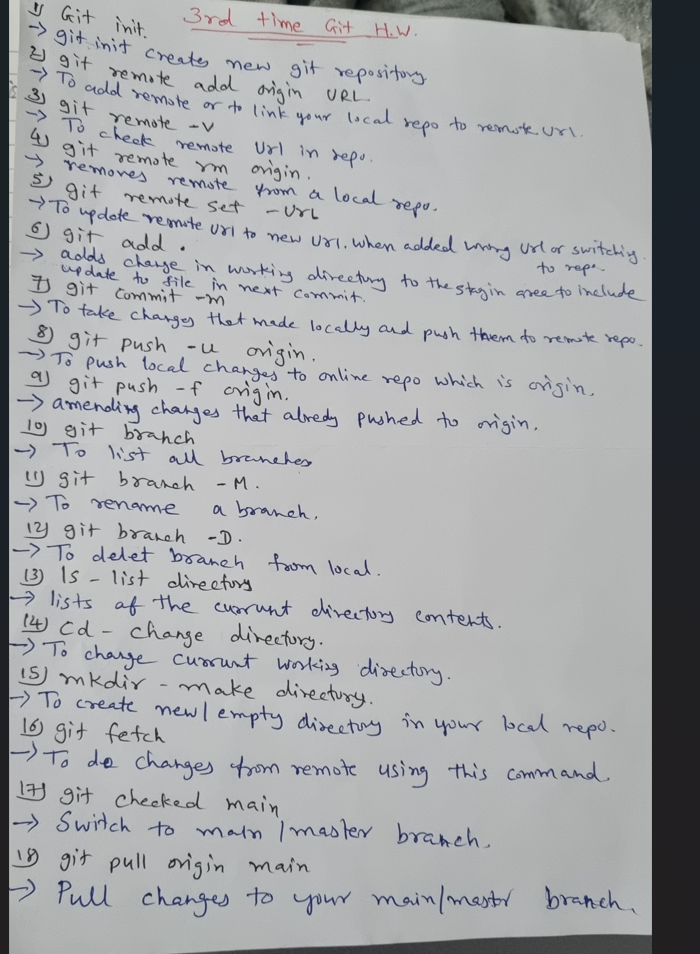 3rd time Git H.W.
1) Git init.
→ git init creates new git repository
2) git remote add origin URL
→ To add remote or to link your local repo to remote url.
3) git remote -v
→ To check remote Url in repo.
4) git remote rm origin.
→ removes remote from a local repo.
5) git remote set -URL
→ To update remote url to new url. when added wrong url or switchig
to repo.
6) git add .
→ adds change in working directory to the stagin area to include
update to file in next commit.
7) git commit -m
→ To take changes that made locally and push them to remote repo.
8) git push -u origin.
→ To push local changes to online repo which is origin.
9) git push -f origin.
→ amending changes that alredy pushed to origin.
10) git branch
→ To list all branches
11) git branch -M.
→ To rename a branch.
12) git branch -D.
→ To delet branch from local.
13) ls - list directory
→ lists of the currunt directory contents.
14) cd - change directory.
→ To change currunt working directory.
15) mkdir - make directory.
→ To create new/empty directory in your local repo.
16) git fetch
→ To do changes from remote using this command.
17) git checked main
→ Switch to main/master branch.
18) git pull origin main
→ Pull changes to your main/mastr branch.